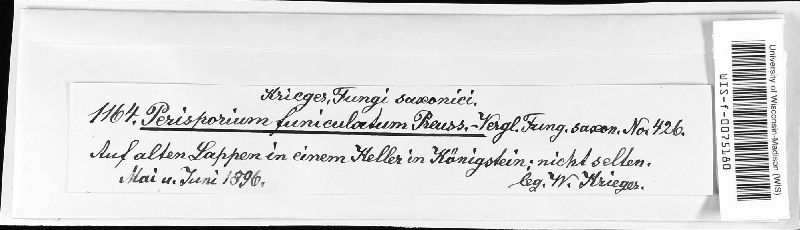 Krieger, Fungi saxonici.
1164. Perisporium funiculatum Preuss. - Vergl. Fung. saxon. No. 426.
Auf alten Lappen in einem Keller in Königstein; nicht selten.
Mai u. Juni 1896. leg. W. Krieger.
University of Wisconsin-Madison (WIS)
WIS-f-0075180